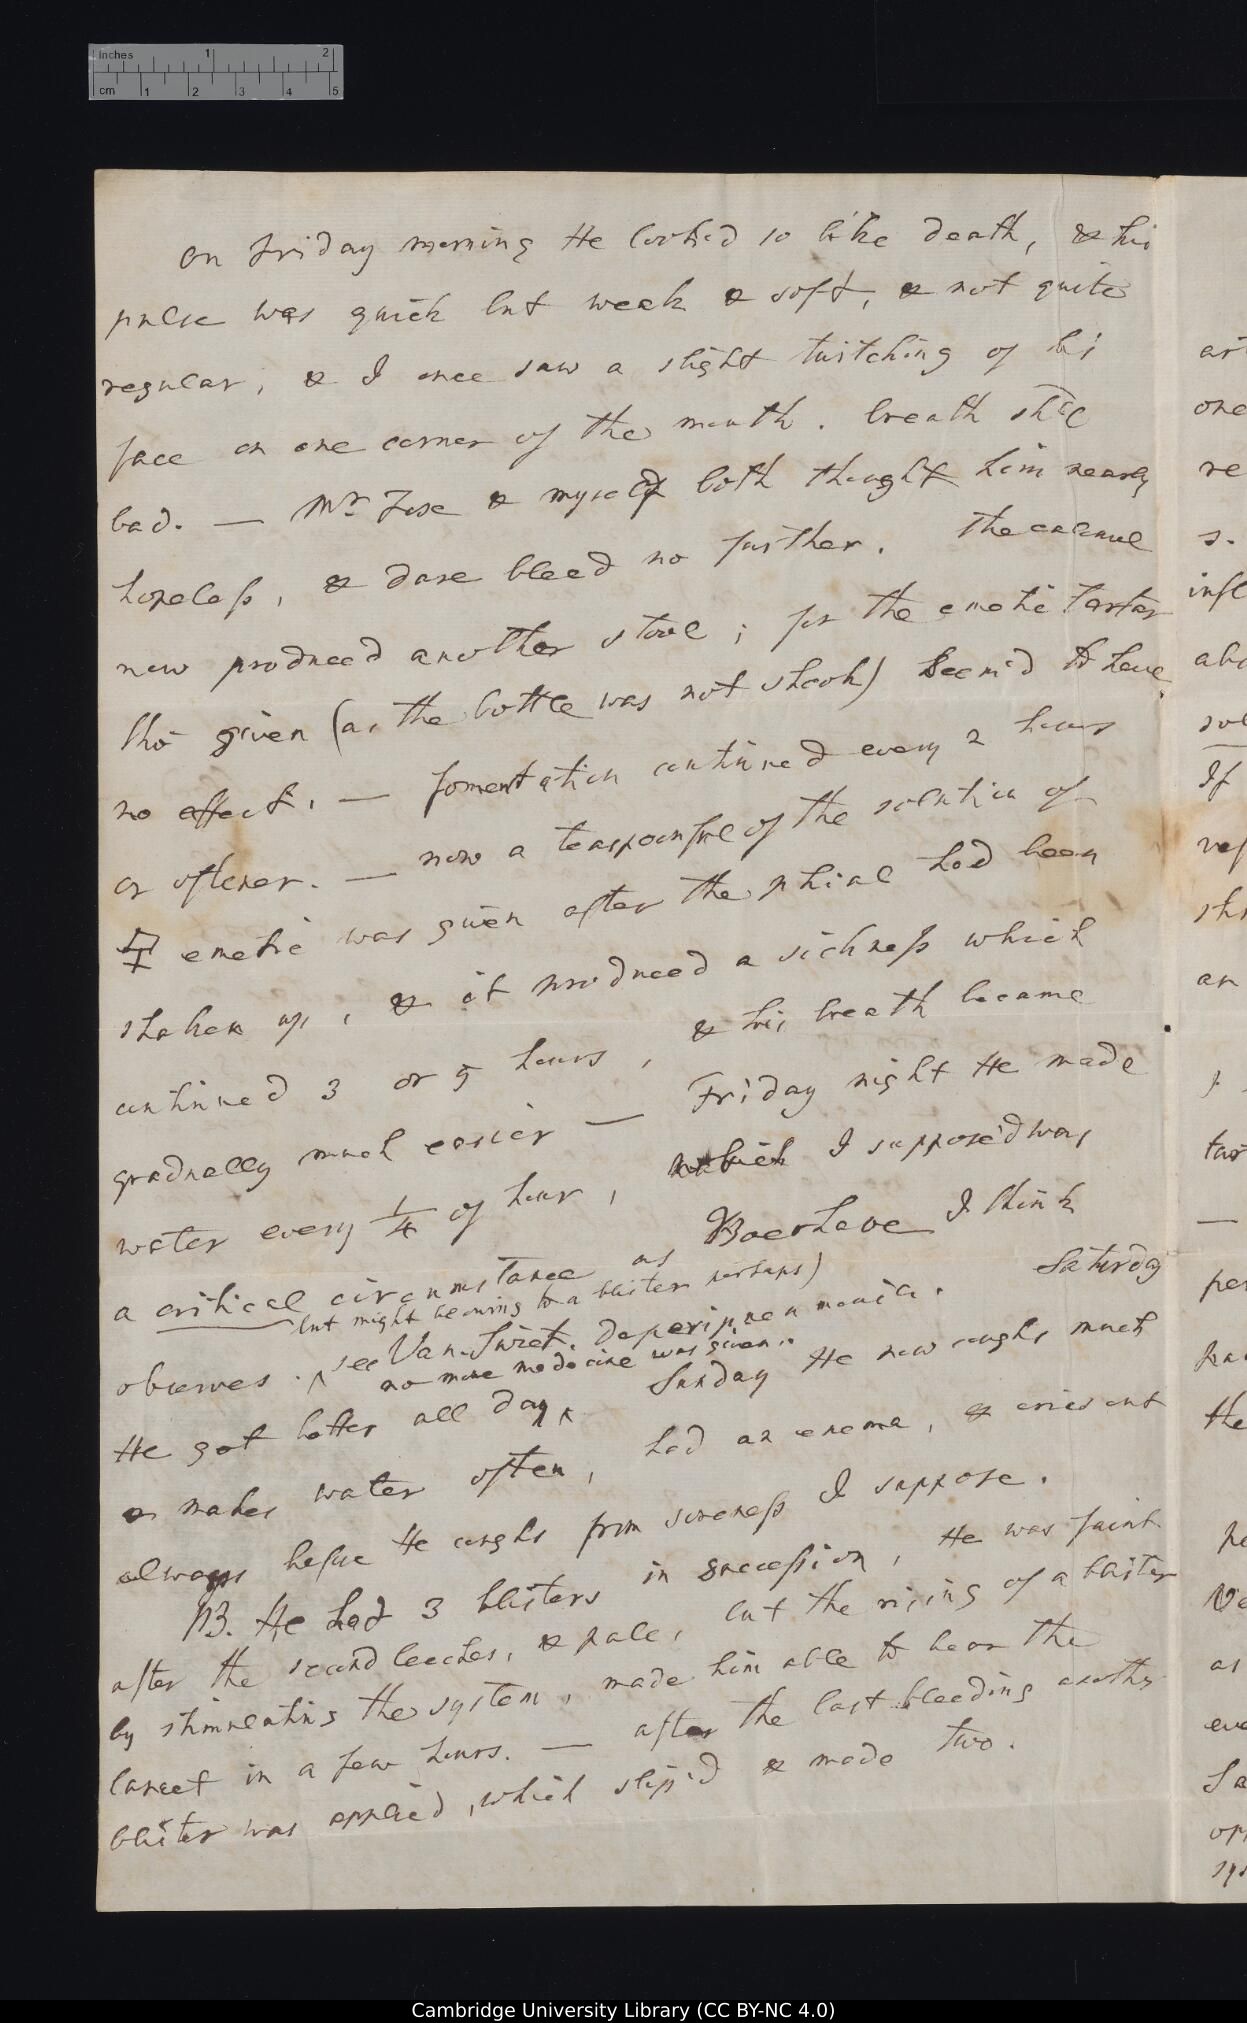 Inches 1 2
cm 1 2 3 4 5
On Friday morning He look'd so like death, & his
pulse was quick but weak & soft, & not quite
regular, & I once saw a slight twitching of his
face on one corner of the mouth. breath still
bad. — Mr. Fox & myself both thought him nearly
hopeless, & dare bleed no further. The calomel
now produced another stool; for the emetic Tartar
tho' given (as the bottle was not shook) seem'd to have
no effect. — fomentation continued every 2 hours
or oftener. — now a teaspoonful of the solution of
emetic was given after the phial had been
shaken up, & it produced a sickness which
continued 3 or 5 hours, & his breath became
gradually much easier — Friday night He made
water every 1/4 of hour, which I supposed was
a critical circumstance as Boerhave I think
but might be owing to a blister perhaps)
observes. see Van-Swiet. de peripneumonia. Saturday
no more medecine was given.
He got better all day Sunday He now coughs much
& makes water often, had an enema, & cries out
always before He coughs from soreness I suppose.
NB. He had 3 blisters in succession, He was faint
after the second leeches, & pale, but the rising of a blister
by stimulating the system, made him able to bear the
lancet in a few hours. — after the last bleeding another
blister was applied, which slip'd & made two.
art
one
re
s.
infl
abo
If
an
per
the
as
eve
sys
Cambridge University Library (CC BY-NC 4.0)